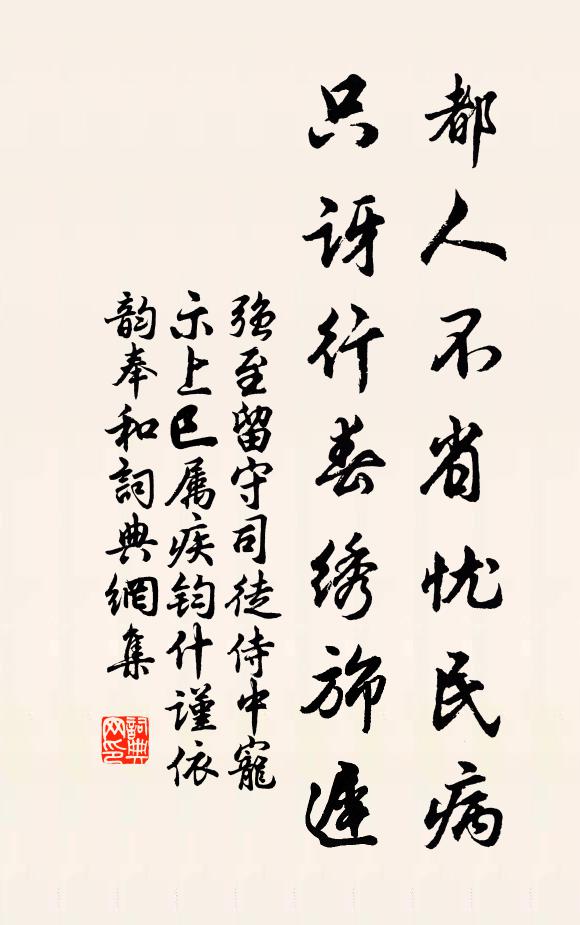 都人不省忧民病
只讶行春绣斾遲
强至留守司徒侍中寵
示上巳属疾钧什谨依
韵奉和詞典網集
詞典网印